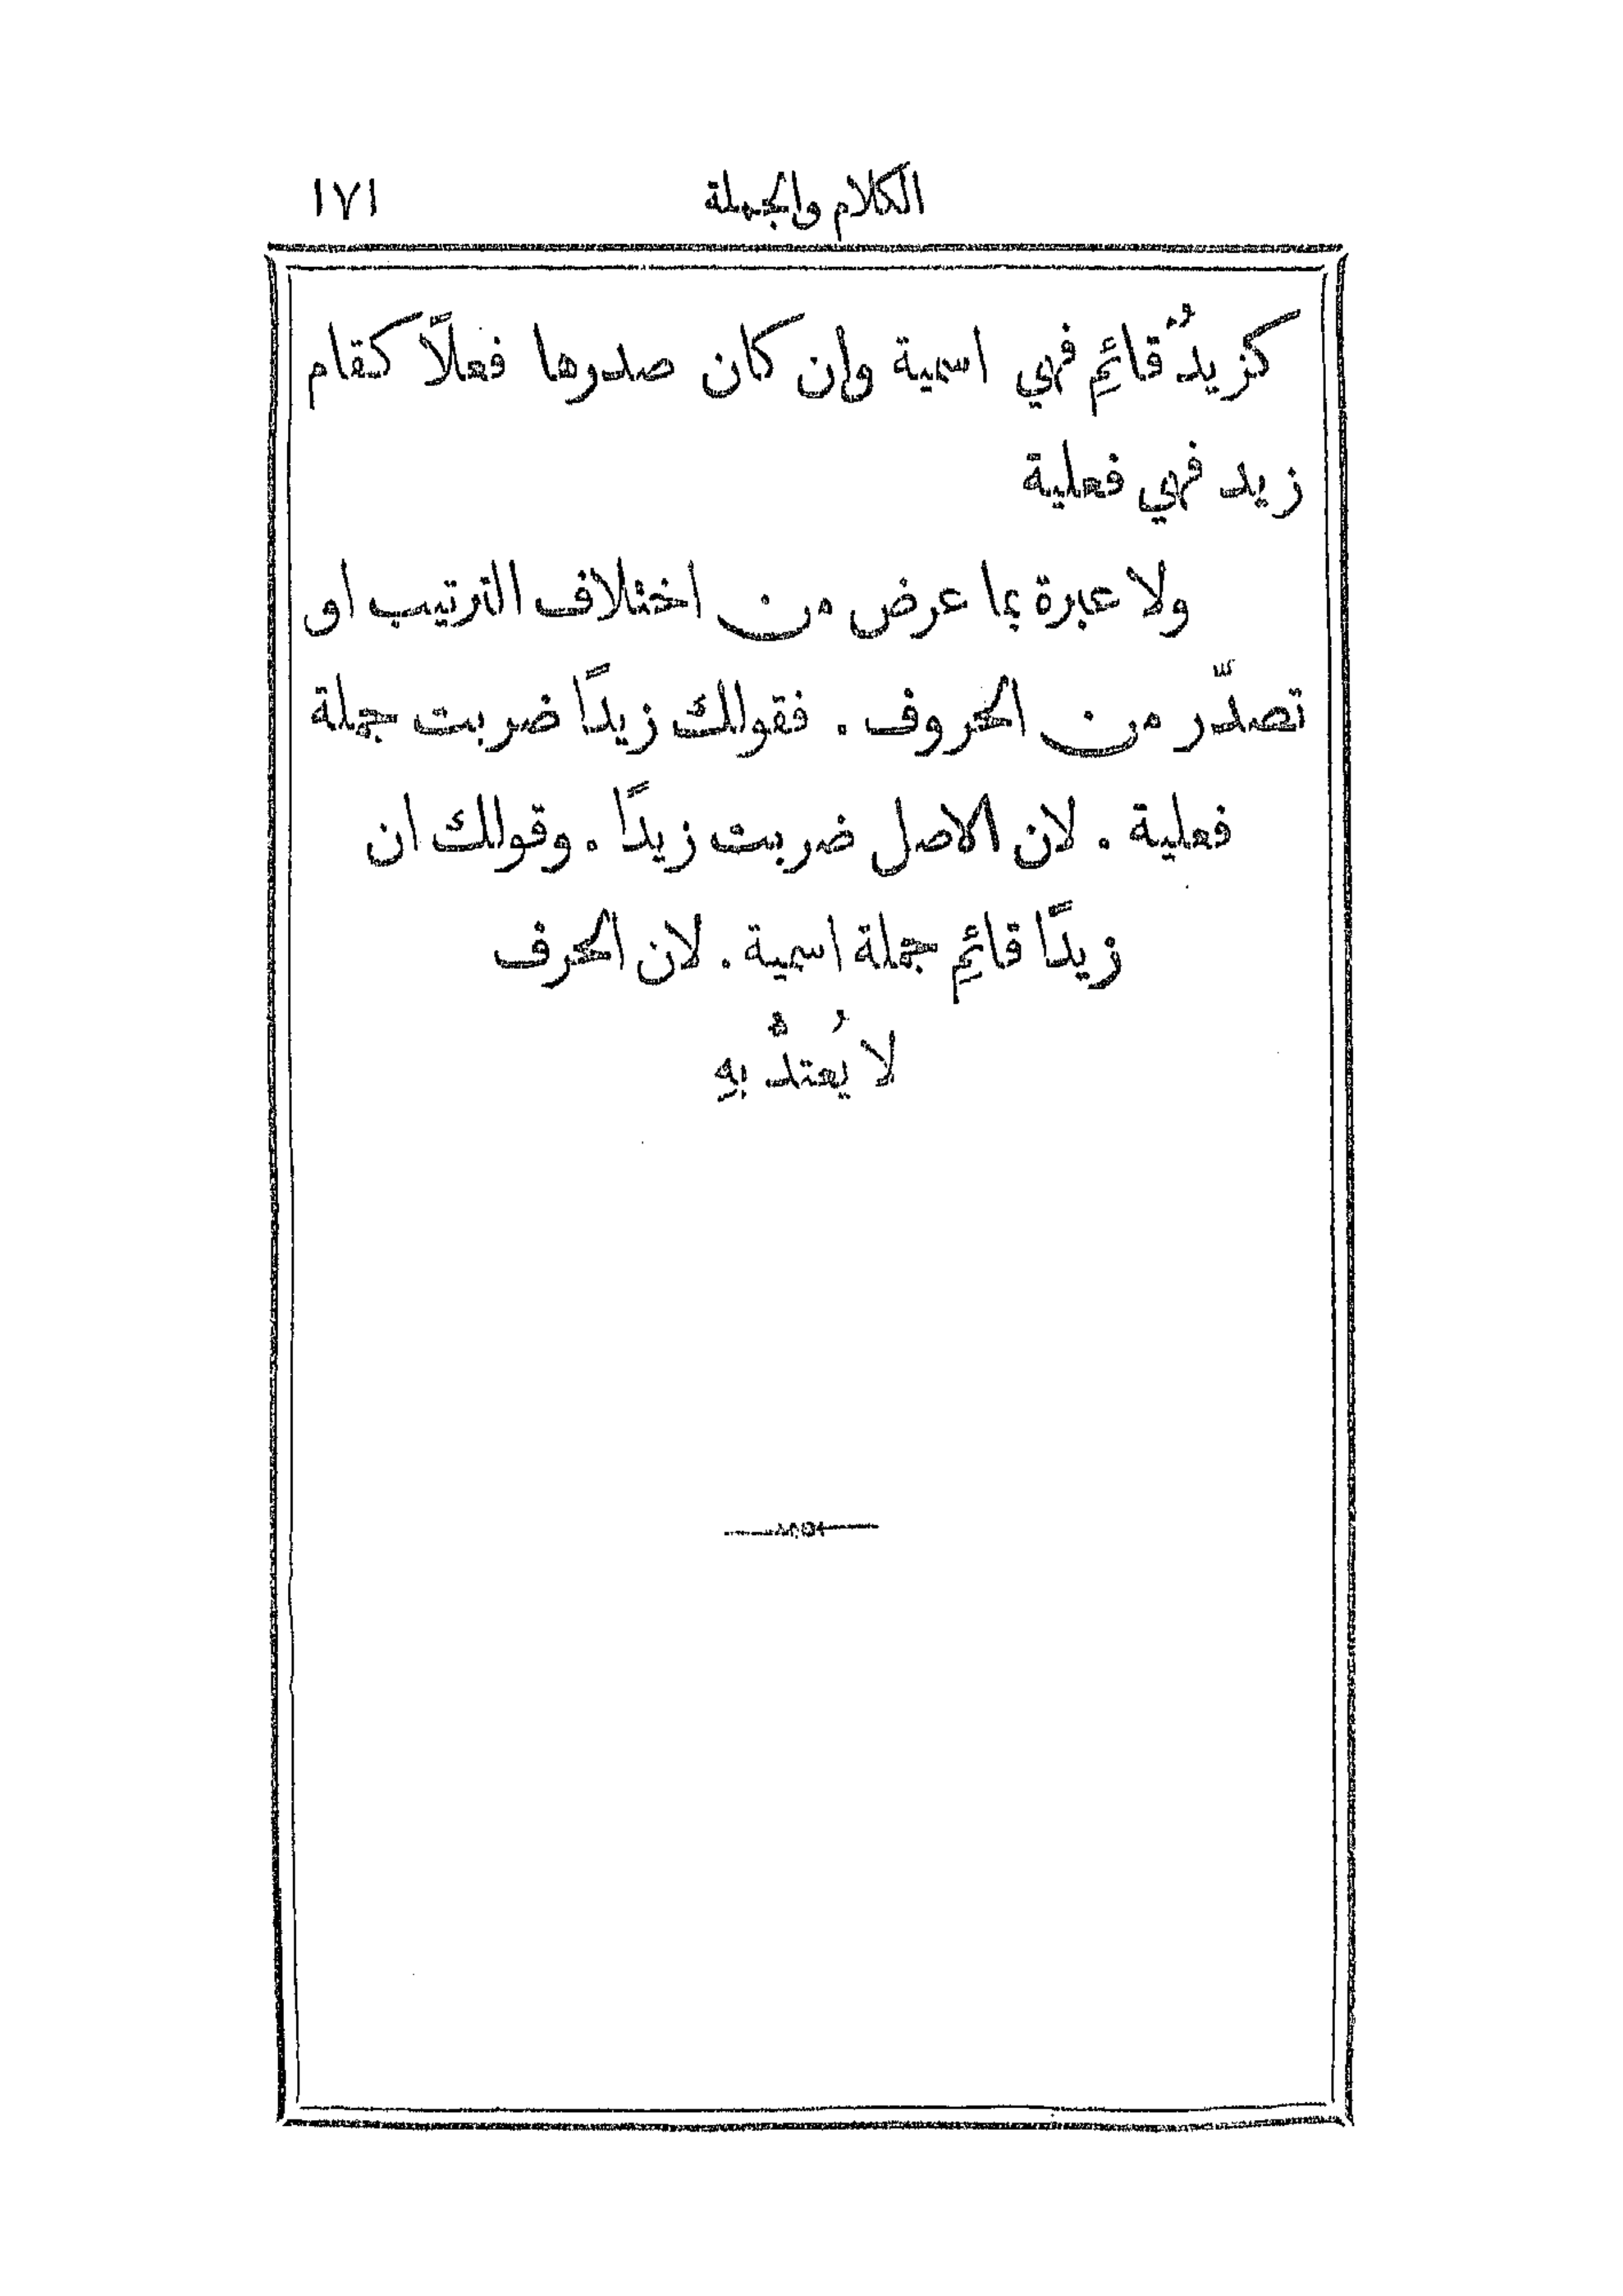 الكلام والجملة ١٧١
كزيدٌ قائمٍ فهي اسمية وان كان صدرها فعلاً كقام
زيد فهي فعلية
ولا عبرة بما عرض من اختلاف الترتيب او
تصدّر من الحروف . فقولك زيداً ضربت جملة
فعلية . لان الاصل ضربت زيداً . وقولك ان
زيداً قائمٍ جملة اسمية . لان الحرف
لا يُعتدُّ بهِ